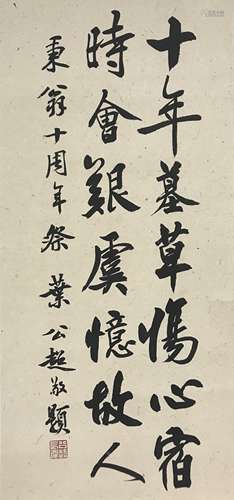 十年墓草傷心宿
時會艱虞憶故人
秉翁十周年祭 葉公超敬題